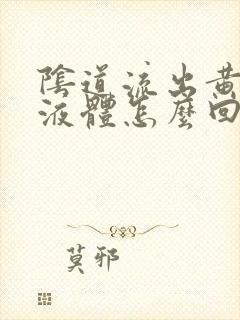 陰道流出黃
液體怎麼回
莫邪